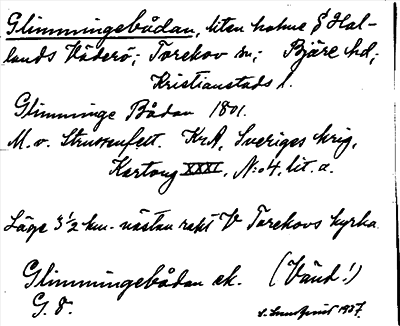 Glimmingebådan, liten holme S Hal-
lands Väderö; Torekov sn; Bjäre hd;
Kristianstads l.
Glimminge Bådan 1801.
M. v. Strussenfelt. KrA, Sveriges krig,
Kartong XXXI, N:o 4. lit. a.
Läge 3 1/2 km. nästan rakt V Torekovs kyrka.
Glimmingebådan ek. (Vänd!)
G. 8.
1937.